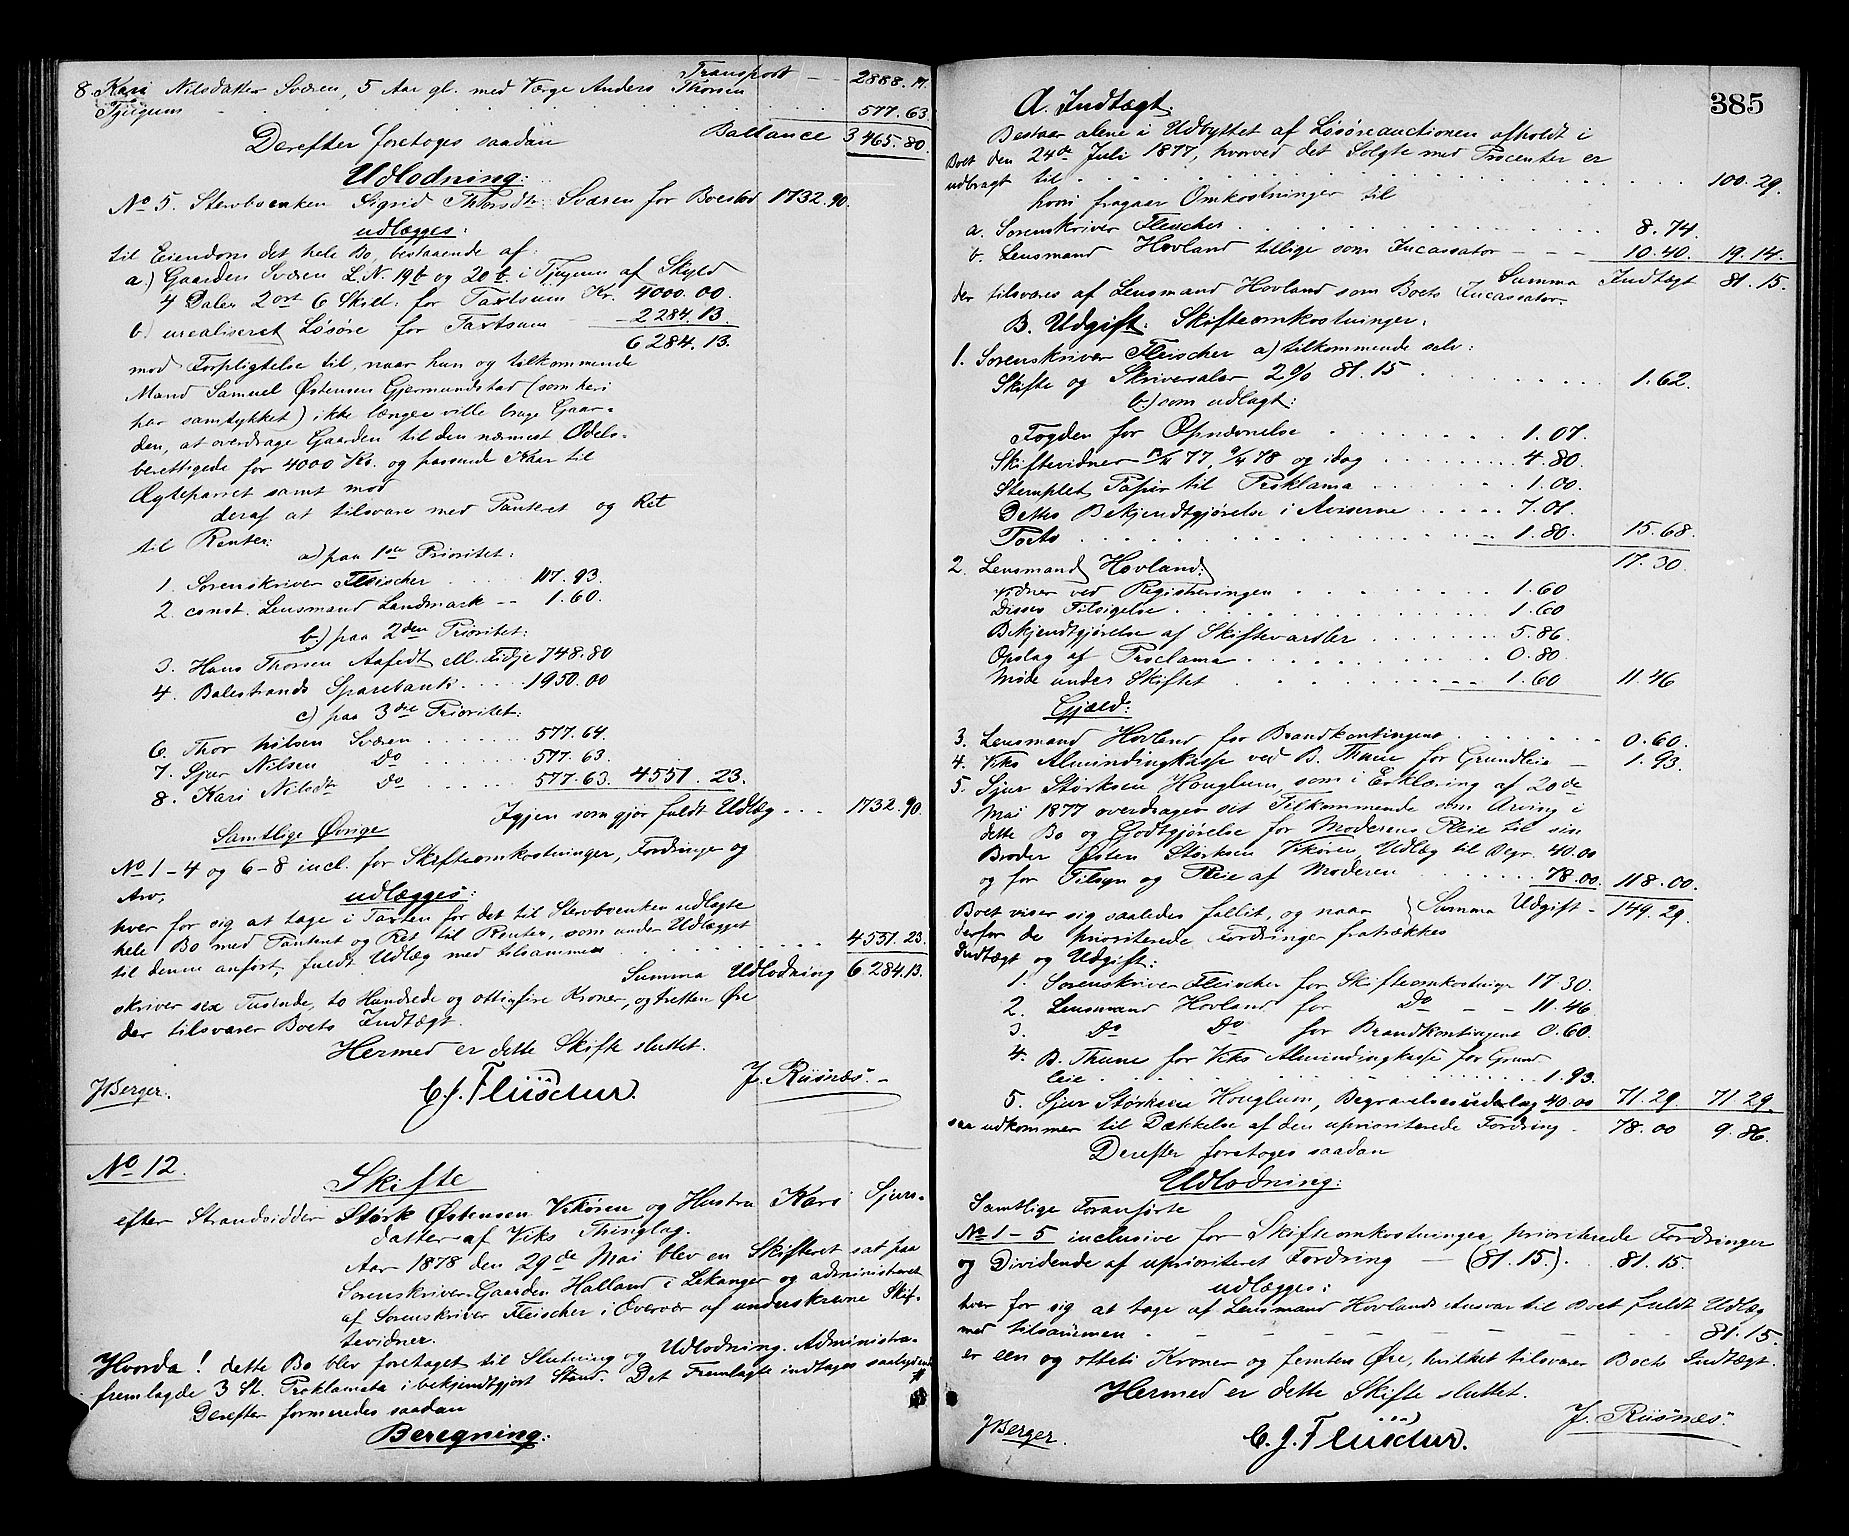 Transport - - 2888.17.
8 Kari Nilsdatter Sværen, 5 Aar gl. med Værge Anders Thorsen
Tjugum . . . . . . . . . 577.63.
Ballance 3465.80.
Derefter foretoges saadan
Udlodning:
No 5. Stervboenken Sigrid Thorsdtr Sværen for Boeslod 1732.90.
udlægges:
til Eiendom det hele Bo, bestaaende af:
a) Gaarden Sværen L.N. 19b og 20b i Tjugum af Skyld
4 Daler 2 ort 6 Skill. for Taxtsum Kr. 4000.00.
b) urealiseret Løsøre for Taxtsum - 2284.13.
6284.13.
mod Forpligtelse til, naar hun og tilkommende
Mand Samuel Østensen Gjermundstad (som heri
har samtykket) ikke længer ville bruge Gaar-
den, at overdrage Gaarden til den nærmest Odels-
berettigede for 4000 Kr. og passende Kaar til
Ægteparret samt mod
deraf at tilsvare med Panteret og Ret
til Renter:
a) paa 1ste Prioritet:
1. Sorenskriver Fleischer . . . . 117.93.
2. const. Lensmand Landmark - - 1.60.
b.) paa 2den Prioritet:
3. Hans Thorsen Aafedt ell. Fidje 748.80
4. Balestrands Sparebank . . . . 1950.00
c) paa 3die Prioritet:
6. Thor Nilsen Sværen . . . . . . 577.64.
7. Sjur Nilsen Do . . . . . . 577.63.
8. Kari Nilsdtr Do . . . . . . 577.63. 4551.23.
Igjen som gjør fuldt Udlæg . . . 1732.90.
Samtlige Øvrige
No 1-4 og 6-8 incl. for Skifteomkostninger, Fordringer og
Arv,
udlægges:
hver for sig at tage i Taxten for det til Stervboenken udlagte
hele Bo med Panteret og Ret til Renter, som under Udlægget
til denne anført, fuldt Udlæg med tilsammen . . . . . . 4551.23.
Summa Udlodning 6284.13.
skriver sex Tusinde, to Hundrede og ottifire Kroner, og tretten Øre
der tilsvarer Boets Indtægt.
Hermed er dette Skifte sluttet.
JBerger. C.J. Fleischer. J. Riisnæs.
No 12.
Skifte
efter Strandsidder Størk Østensen Vikøren og Hustru Kari Sjurs-
datter af Viks Thinglag.
Aar 1878 den 29de Mai blev en Skifteret sat paa
Sorenskriver-Gaarden Halland i Lekanger og administreret
af Sorenskriver Fleischer i Overvær af underskrevne Skif-
tevidner.
Hvorda! dette Bo blev foretaget til Slutning og Udlodning. Administra-
fremlagde 3 St. Proklamata i bekjendtgjort Stand. Det Fremlagte indtages saalydende
Derefter formeredes saadan
Beregning:
385
A. Indtægt.
Bestaar alene i Udbyttet af Løsøreauctionen afholdt i
Boet den 24de Juli 1877, hvorved det Solgte med Procenter er
udbragt til . . . . . . . . . 100.29.
hvori fragaar Omkostninger til
a. Sorenskriver Fleischer . . . . . . . 8.74.
b. Lensmand Hovland tillige som Incassator - - - 10.40. 19.14.
Summa Indtægt 81.15.
der tilsvares af Lensmand Hovland som Boets Incassator.
B. Udgift. Skifteomkostninger:
1. Sorenskriver Fleischer a) tilkommende selv:
Skifte og Skriversalær 2% 81.15 . . . . . . 1.62.
b.) som udlagt:
Fogden for Opnævnelse . . . . . . 1.07.
Skiftevidner 77, 78 og idag . . . . . . 4.80.
Stemplet Papir til Proklama . . . . . . 1.00.
Dettes Bekjendtgjørelse i Aviserne . . . . . 7.01.
Porto . . . . . . . . . 1.80. 15.68.
17.30.
2. Lensmand Hovland:
Vidner ved Registreringen . . . . . . 1.60
Disses Tilsigelse . . . . . . . . 1.60
Bekjendtgjørelse af Skiftevarsler . . . . . . 5.86.
Opslag af Proclama . . . . . . . . 0.80.
Møde under Skiftet . . . . . . . 1.60 11.46
Gjæld:
3. Lensmand Hovland for Brandkontingent . . . . . . 0.60.
4. Viks Almindingkasse ved B. Thune for Grundleie - 1.93.
5. Sjur Størksen Houglum, som i Erklæring af 20de
Mai 1877 overdrager sit Tilkommende som Arving i
dette Bo og Godtgjørelse for Moderens Pleie til sin
Broder Østen Størksen Vikøren Udlæg til Begr. 40.00
og for Tilsyn og Pleie af Moderen . . . . . 78.00. 118.00.
Summa Udgift - 149.29.
Boet viser sig saaledes fallit, og naar
derfor de prioriterede Fordringer fratrækkes
Indtægt og Udgift:
1. Sorenskriver Fleischer for Skifteomkostninger 17.30.
2. Lensmand Hovland for Do - - 11.46.
3. Do Do for Brandkontingent 0.60.
4. B. Thune for Viks Almindingkasse for Grund
leie . . . . . . . . . 1.93.
5. Sjur Størksen Houglum, Begravelsesudelæg 40.00 71.29. 71.29.
saa udkommer til Dækkelse af den uprioriterede Fordring . 78.00 9.86.
Derefter foretoges saadan
Udlodning:
Samtlige Foranførte
No 1-5 inclusive for Skifteomkostninger, prioriterede Fordringer
og Dividende af uprioriteret Fordring - (81.15.) . . 81.15.
udlægges:
hver for sig at tage af Lensmand Hovlands Ansvar til Boet fuldt Udlæg
med tilsammen - - - - - - - - 81.15
er een og otteti Kroner og femten Øre, hvilket tilsvarer Boets Indtægt.
Hermed er dette Skifte sluttet.
JBerger. C.J. Fleischer. J. Riisnæs.